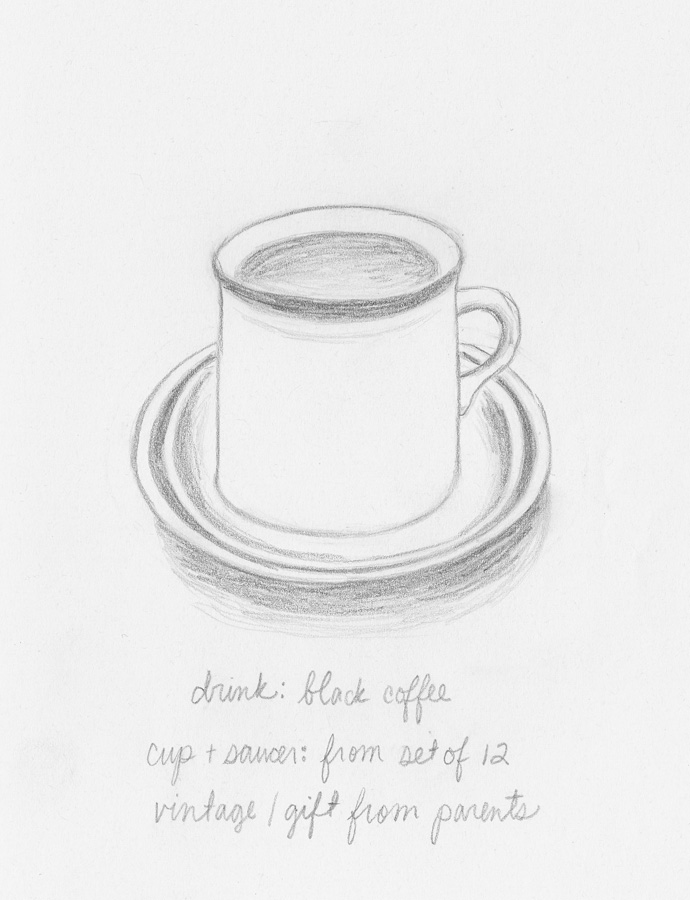 drink: black coffee
cup + saucer: from set of 12
vintage / gift from parents